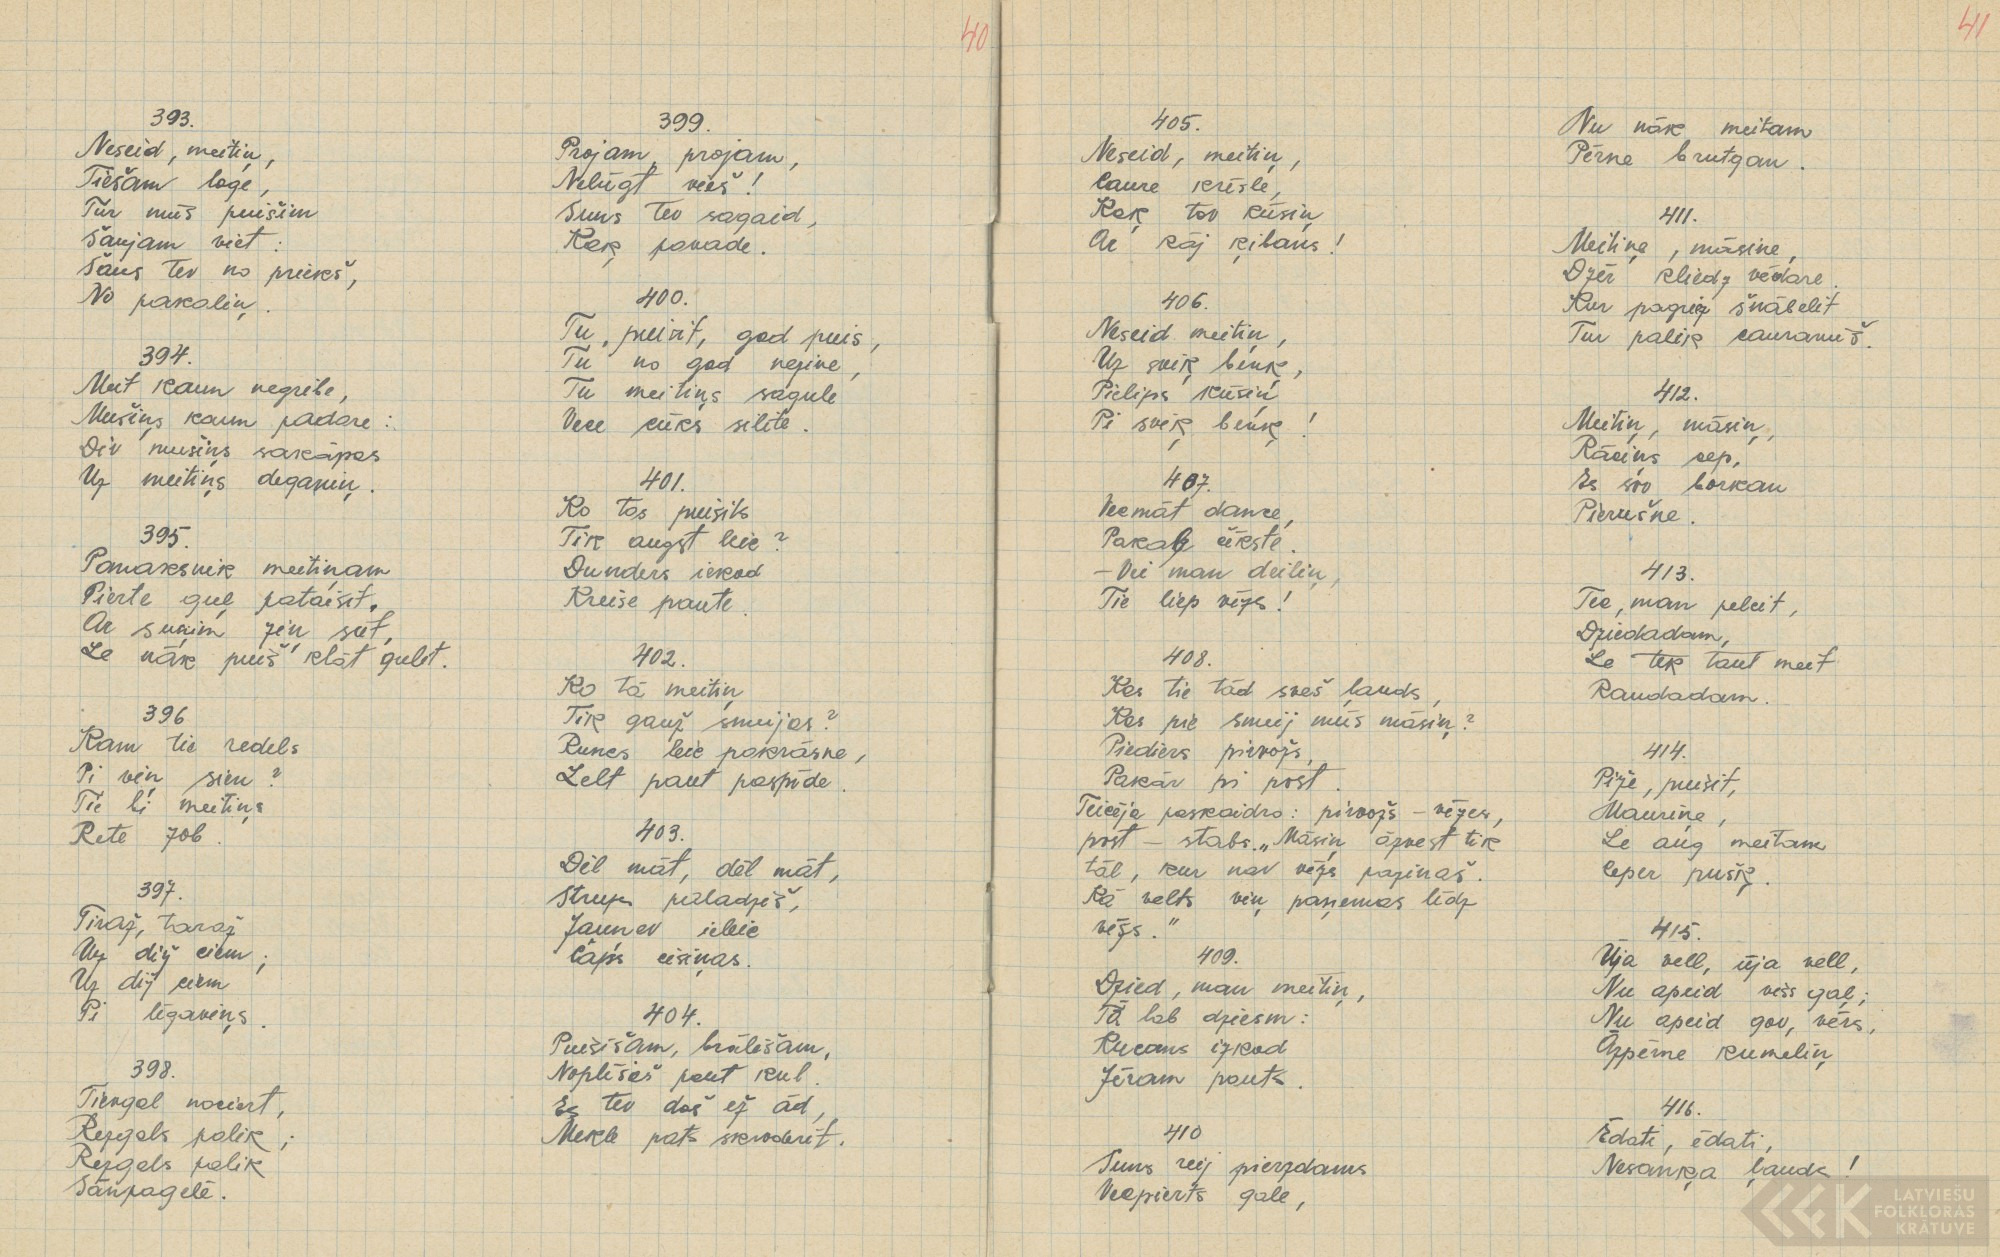 40
393.
Neseid, meitiņ,
Tiešam loge,
Tur mūs puišim
Šaujam viet:
Šaus tev no priekš,
No pakaliņ.
394.
Meit kaun negribe,
Mušiņs kaun padare:
Div mušiņs sakāpas
Uz meitiņs deganiņ.
395.
Pamaksnik meitiņam
Pierte guļ pataisit,
Ar suņim ziņ sūt,
Le nāk puiš klāt gulēt.
396
Kam tie redels
Pi viņ sien?
Tie bi meitiņs
Rete zob.
397.
Tiraž, taraž
Uz diž ciem;
Uz diž ciem
Pi līgaviņs.
398.
Tievgal nocirt,
Rezgals palik;
Rezgals palik
Sānpagelē.
399.
Projam, projam,
Nelūgt vieš!
Suns tev sagaid,
Kaķ pavade.
400.
Tu, puisit, god puis,
Tu no god nezine,
Tu meitiņs sagule
Vece cūks silite.
401.
Ko tas puisits
Tik augst leie?
Dunders iekod
Kreise paute.
402.
Ko tā meitiņ
Tik gauž smeijas?
Runcs leie pakrāsne,
Zelt paut paspīde.
403.
Dēl māt, dēl māt,
Strups paladziš,
Jaunav ieleie
Čāps cisiņas.
404.
Puisišam, brālišam,
Noplīsiš paut kul.
Es tev daš ež ād,
Mekle pats skroderit.
41
405.
Neseid, meitiņ,
Caure krēsle,
Kaķ tav kūsiņ
Ar kāj ķibans!
406.
Neseid meitiņ,
Uz sviķ beņķ,
Pielips kūsiņ
Pi sviķ beņķ!
407.
Vecmāt dance,
Pakaļ čīkste.
– Vei man deiliņ,
Tie liep vīzs!
408.
Kas tie tād sveš ļauds,
Kas pie smeij mūs māsiņ?
Piediers pirvožs,
Pakār pi post.
Teicēja paskaidro: pirvožs – vīzes,
post – stabs. „Māsiņ āzvest tik
tāl, kur nav vīzs pazinaš.
Kā velts viņ paņemas līdz
vīzs."
409.
Dzied, man meitiņ,
Tā lab dziesm:
Kucans izkod
Jēram pauts.
410
Suns reij pierzdams
Vecpierts gale,
Nu nāk meitam
Pērne brutgan.
411.
Meitiņe, māsine,
Dzēr kliedz vēdare.
Kur pagriež šnābelit
Tur palik cauramiš.
412.
Meitiņ, māsiņ,
Rāciņs cep,
Es sov borkan
Pierušne.
413.
Tec, man peleit,
Dziedadam,
Le tek taut meit
Raudadam.
414.
Piže, puisit,
Maurine,
Le aug meitam
Ceper pušķ.
415.
Ūja vell, ūja vell,
Nu apeid viss gaļ;
Nu apeid gov, vērs,
Āzpērne kumeliņ
416.
Ēdati, ēdati,
Nesaņķa ļauds!
LATVIEŠU
FOLKLORAS
KRĀTUVE